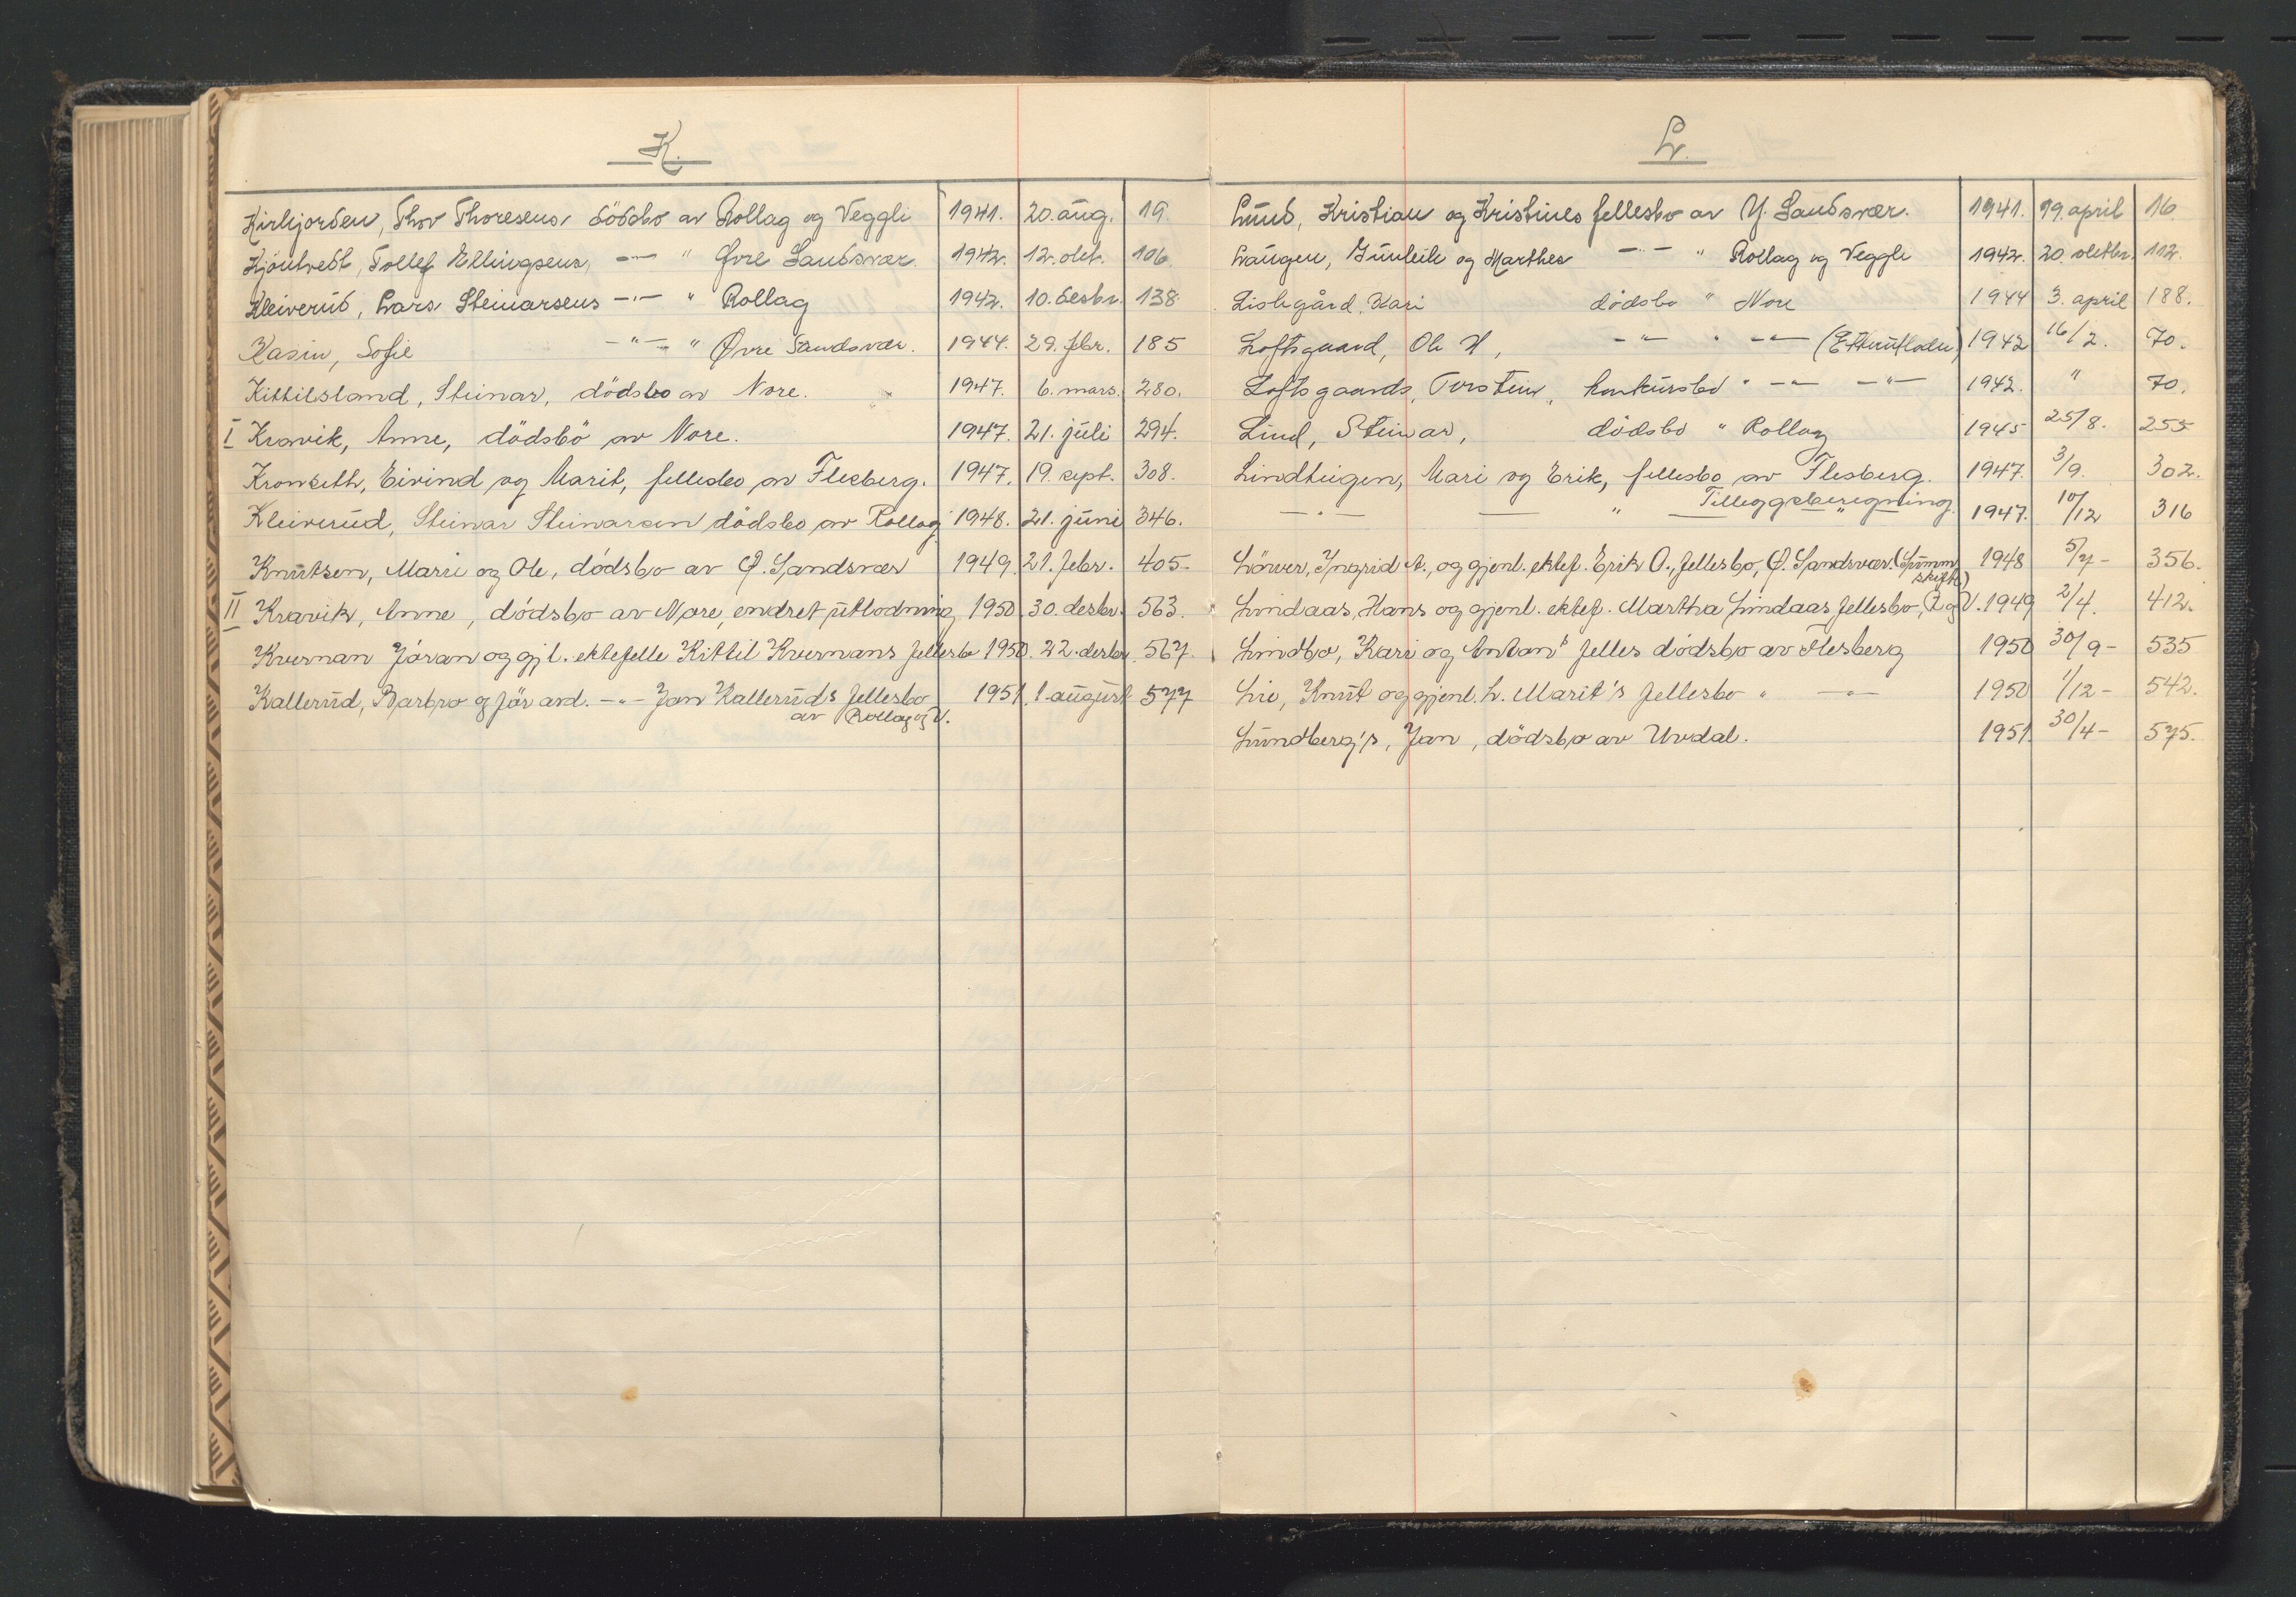 K.
Kirkjorden, Thov Thoresens dödsbo av Rollag og Veggli 1941. 20. aug. 19.
Kjöntvedt, Tollef Ellingsens, -"- " Øvre Sandsvær. 1942. 12. okt. 106.
Kleiverud, Lars Steinarsens -"- " Rollag 1942. 10. desbr. 138.
Kasin, Sofie -"- " Øvre Sandsvær. 1944. 29. febr. 185
Kittilsland, Steinar, dödsbo av Nore. 1947. 6. mars. 280.
I Kravik, Anne, dödsbö av Nore. 1947. 21. juli 294.
Kronseth, Eivind og Marit, fellesbo av Flesberg. 1947. 19. sept. 308.
Kleiverud, Steinar Steinarsen dödsbo av Rollag 1948. 21. juni 346.
Knutsen, Marie og Ole, dödsbo av Ø. Sandsvær 1949. 21. febr. 405-
II Kravik, Anne, dödsbo av Nore, endret utlodning 1950. 30. desbr. 563.
Kvernan Jöran og gjl. ektefelle Kittil Kvernans fellesbo 1950. 22. desbr. 567.
Kallerud, Barbro og før avd. -"- Jon Kalleruds fellesbo 1951. 1. august 577
av Rollag og V.
L.
Lund, Kristian og Kristines fellesbo av Y. Sandsvær. 1941. 29. april 16.
Laugen, Gunleik og Marthes -"- " Rollag og Veggli 1942. 20. oktbr. 112.
Lislegård, Kari dödsbo " Nore 1944 3. april 188.
Loftsgaard, Ole H, -"- " -"- (Etterutlodn) 1942 16/2. 70.
Loftsgaards, Torstein, konkursbo " -"- -"- 1942. " 70.
Lind, Steinar, dödsbo " Rollag 1945 25/8. 255
Lindteigen, Mari og Erik, fellesbo av Flesberg. 1947. 3/9. 302.
-"- — " Tilleggsberegning. 1947. 10/12 316
Löver, Ingrid A., og gjenl. ektef. Erik O., fellesbo, Ø. Sandsvær. (Summ. skifte) 1948 5/7- 356.
Lindaas, Hans og gjenl. ektef. Martha Lindaas fellesbo, R. og V. 1949 2/4. 412.
Lindbo, Kari og Antons felles dödsbo av Flesberg 1950 30/9- 535
Lio, Knut og gjenl. h. Marit's fellesbo " -"- 1950 1/12- 542.
Lundberg's, Jan, dödsbo av Uvdal. 1951. 30/4- 575.